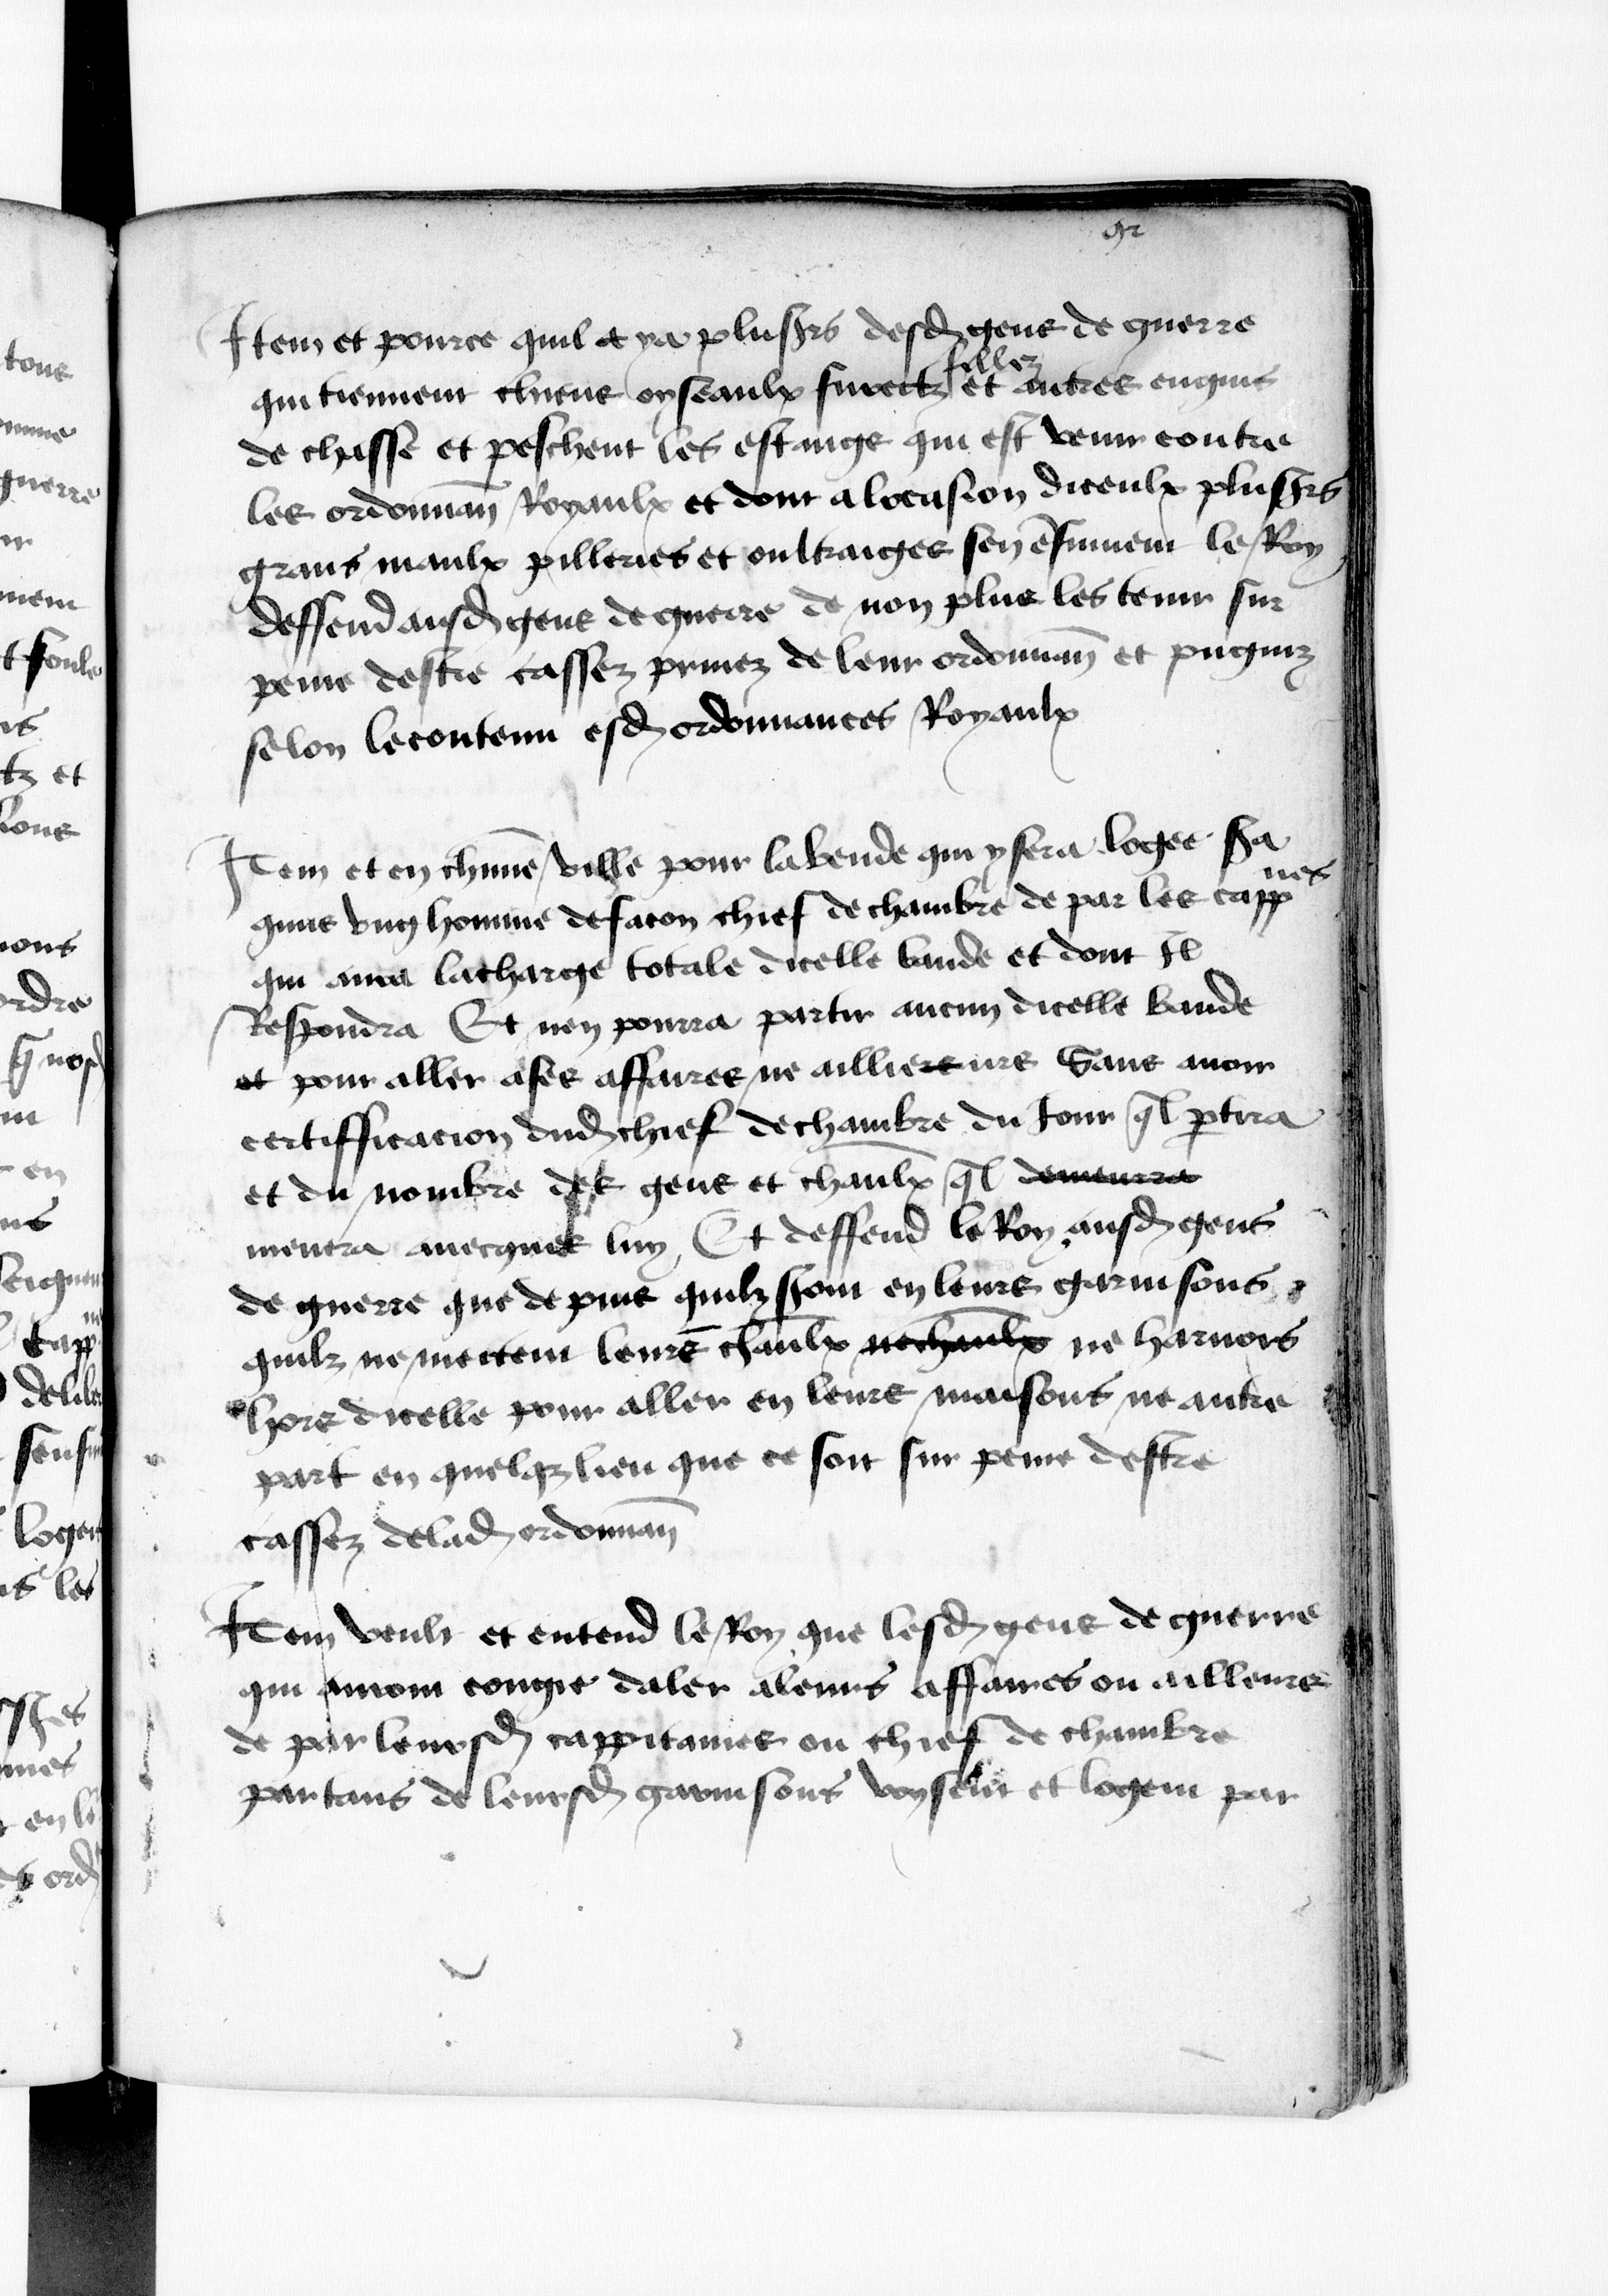 Item et pource quil e ya plusrs desd gens de guerre
fillez
qui tiennent chiens oyseaulx furectz et autres engins
de chasse et peschent les estangs qui est venir contre
les ordonnan Royaulx et dont a locasion diceulx plusrs
grans maulx pilleries et oultraiges sen ensuivent le Roy
deffend ausd gens de guerre de non plus les tenir sur
peine destre cassez privez de leur ordonnan et pugniz
selon le contenu esd ordonnances Royaulx
Item et en chune ville pour la bende qui y sera logee
ung homme de facon chief de chambre de par les cappnes
qui aura la charge totale dicelle bande et dont Il
Respondra Et nen pourra partir aucun dicelle bande
et pour aller a ses affaires ne aillieurs Sans avoir
certifficacion dud chief de chambre du Jour ql ptira
et du nombre des gens et chaulx ql demeurra
menera avecques luy Et deffend le Roy ausd gens
de guerre que depuis quilz sont en leurs garnisons
quilz ne mectent leurs chaulx ne chaulx ne harnois
hors dicelle pour aller en leurs maisons ne autre
part en quelqz lieu que ce soit sur peine destre
cassez de lad ordonnan
Item veult et entend le Roy que lesd gens de guerre
qui auront congie daler a leurs affaires ou ailleurs
de par leursd cappitaines ou chief de chambre
partans de leursd garnisons voysent et logent par